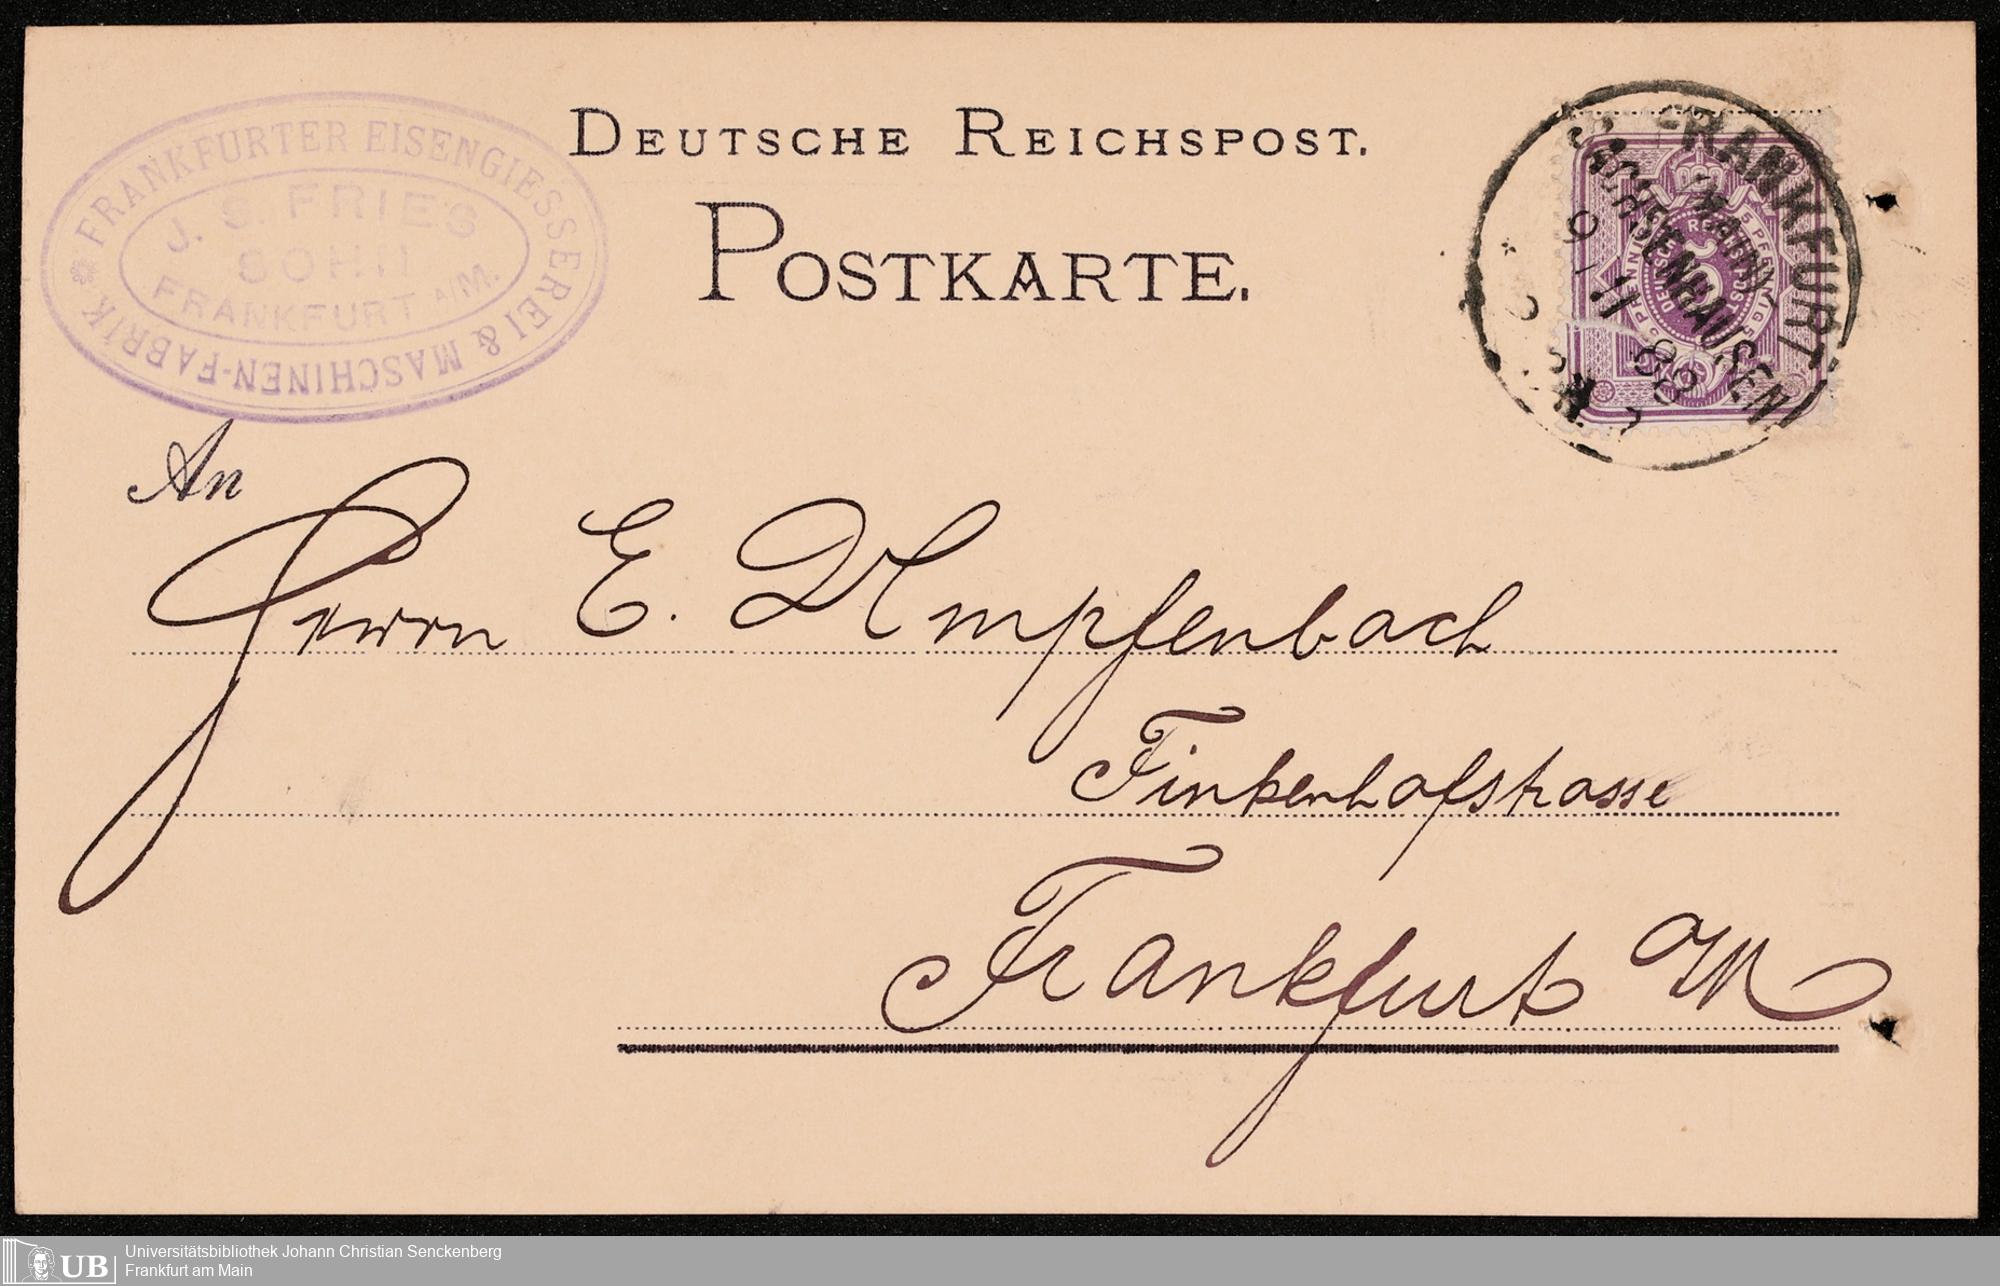 FRANKFURTER EISENGIESSEREI & MASCHINEN-FABRIK
J. S. FRIES
SOHN
FRANKFURT A/M.
DEUTSCHE REICHSPOST.
POSTKARTE.
FRANKFURT
(MAIN)-
SACHSENHAUSEN
9 11
88
5 PFENNIG 5
DEUTSCHE REICHSPOST
5
An
Herrn E. Umpfenbach
Finkenhofstrasse
Frankfurt M
UB
Universitätsbibliothek Johann Christian Senckenberg
Frankfurt am Main